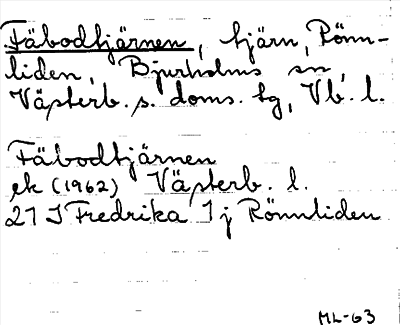 Fäbodtjärnen, tjärn, Rönn-
liden, Bjurholms sn,
Västerb. s. doms. tg, Vb. l.
Fäbodtjärnen
ek (1962) Västerb. l.
21 J Fredrika 1 j Rönnliden
ML-63